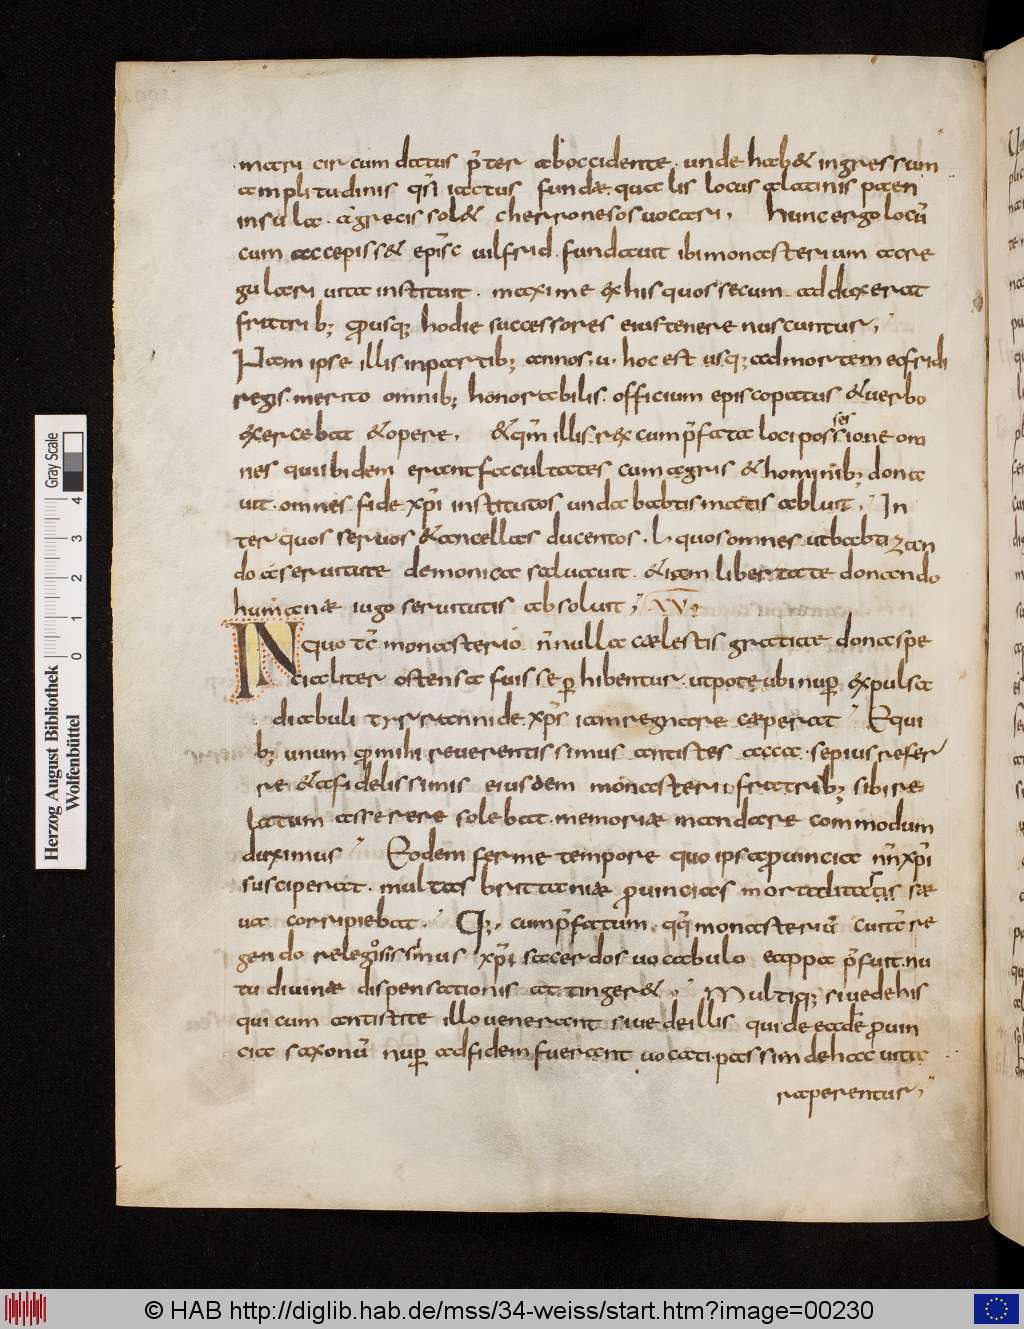 mari circum datus p̄ter aboccidente. unde hab& ingressum
amplitudinis qsi iactus fundae. qualis locus alatinis paen
insula. agrecis sol& cherronesos uocari, hunc ergo locū
cum accepiss& epīsc uilfrid. fundauit ibi monasterium ac re
gulari uita instituit. maxime &his quos secum adduxerat
fratrib; ꝓusq; hodie successores eius tenere nuscuntur,
Nam ipse illis inpartib; annos. u. hoc est usq; admortem ecfridi
regis. merito omnib; honorabilis. officium episcopatus &uerbo
exercebat &opere, &qm̄ illis rex cum p̄fata loci possessione om
nes quiibidem erant facultates cum agris &hominib; dona
uit. omnes fide xp̄i institutos unda babtismatis abluit, In
ter quos seruos &ancellas ducentos. L. quos omnes utbabtizan
do aseruitute demonica saluauit. &iam libertate donando
humanae iugo seruitutis absoluit, XV,
IN quo tc̄ monasterio n̄nulla caelestis gratiae dona spe
cialiter ostensa fuisse phibentur. utpote ubi nup̄ expulsa
diabuli tyrrannide. xp̄s iam regnare caeperat Equi
b; unum ꝓ mihi reuerentissimus antistes acca. sepius refer
re &afidelissimis eiusdem monasterii fratrib; sibi re
latum asserere solebat. memoriae mandare commodum
duximus Eodem ferme tempore quo ipsa ꝓuincia nn̄ xp̄i
susciperat. multas brittaniae ꝓuincias mortalitas sae
ua corripiebat. Q; cum p̄fatum. qq̄ monasteriū cuitc̄ re
gendo relegiosissimus xp̄i sacerdos uocabulo eappa p̄fuit. nu
tu diuinae dispensationis attinger&, Multiq; siue de his
qui cum antistite illo uenerant siue de illis qui de eadē ꝓuin
cia saxonū nup̄ adfidem fuerant uocati. passim de hac uita
raperentur,
0 1 2 3 4
Gray Scale
Herzog August Bibliothek
Wolfenbüttel
© HAB http://diglib.hab.de/mss/34-weiss/start.htm?image=00230